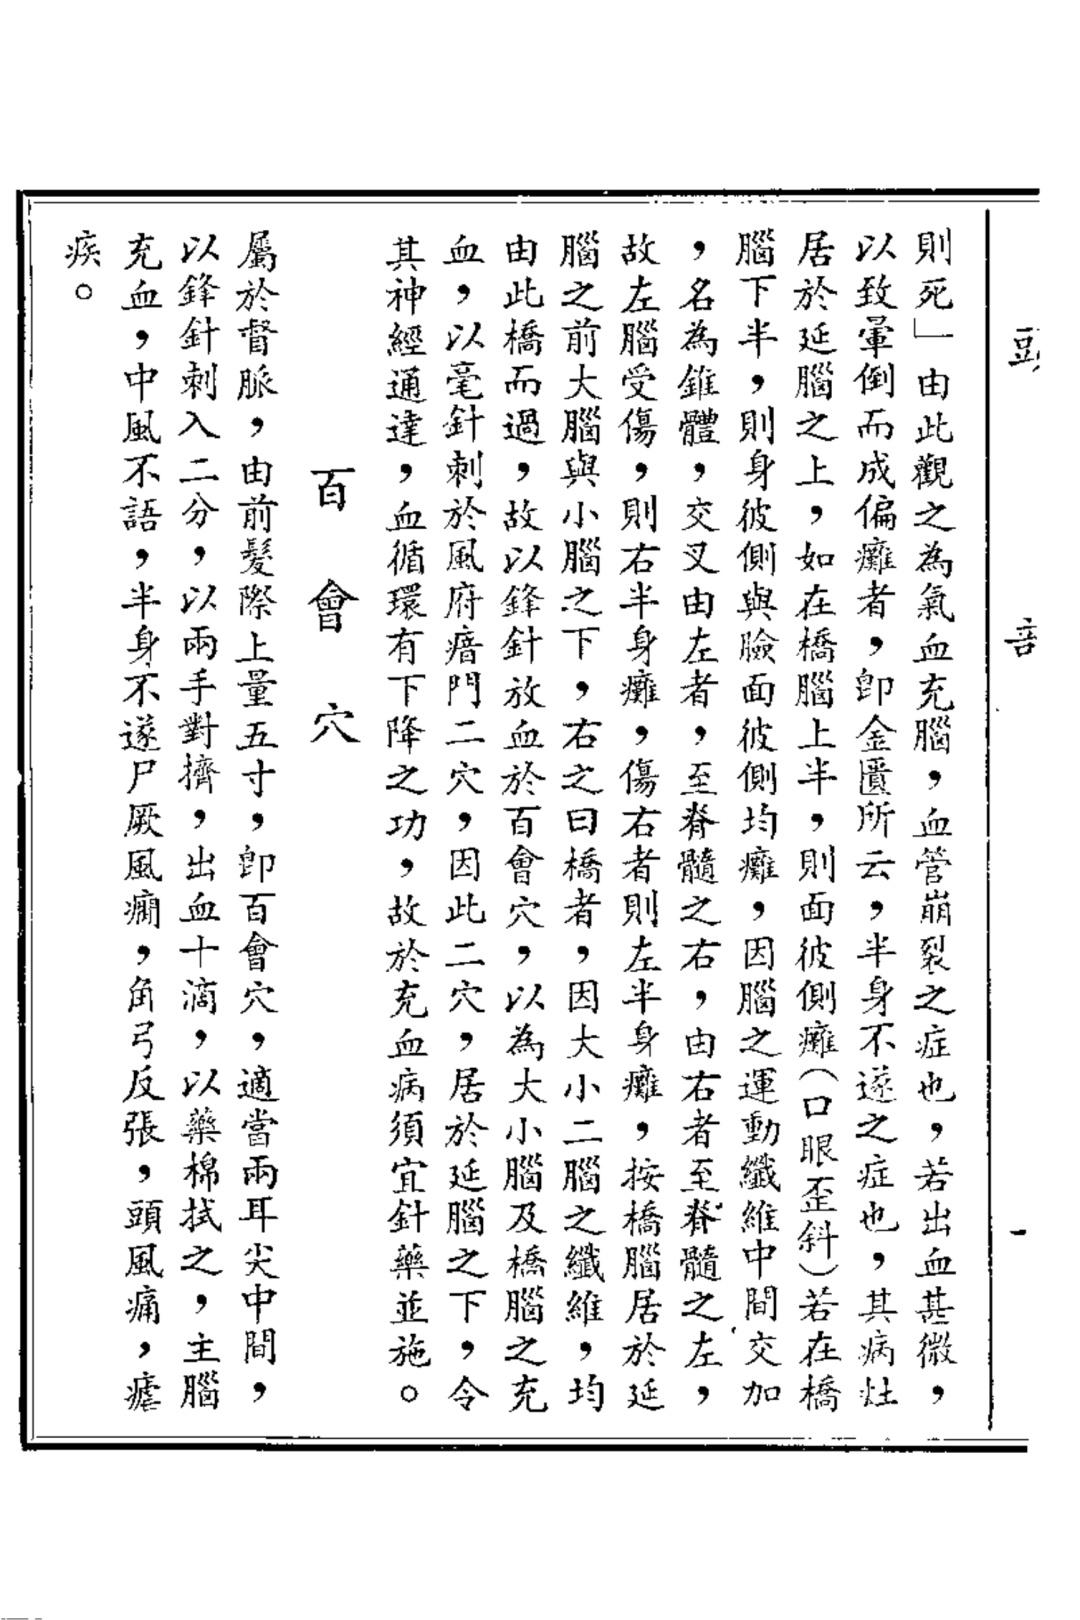 頭部 一
則死」由此觀之為氣血充腦，血管崩裂之症也，若出血甚微，
以致暈倒而成偏癱者，卽金匱所云，半身不遂之症也，其病灶
居於延腦之上，如在橋腦上半，則面彼側癱（口眼歪斜）若在橋
腦下半，則身彼側與臉面彼側均癱，因腦之運動纖維中間交加
，名為錐體，交叉由左者，至脊髓之右，由右者至脊髓之左，
故左腦受傷，則右半身癱，傷右者則左半身癱，按橋腦居於延
腦之前大腦與小腦之下，右之曰橋者，因大小二腦之纖維，均
由此橋而過，故以鋒針放血於百會穴，以為大小腦及橋腦之充
血，以毫針刺於風府瘖門二穴，因此二穴，居於延腦之下，令
其神經通達，血循環有下降之功，故於充血病須宜針藥並施。
百會穴
屬於督脈，由前髮際上量五寸，卽百會穴，適當兩耳尖中間，
以鋒針刺入二分，以兩手對擠，出血十滴，以藥棉拭之，主腦
充血，中風不語，半身不遂尸厥風癇，角弓反張，頭風痛，瘧
疾。